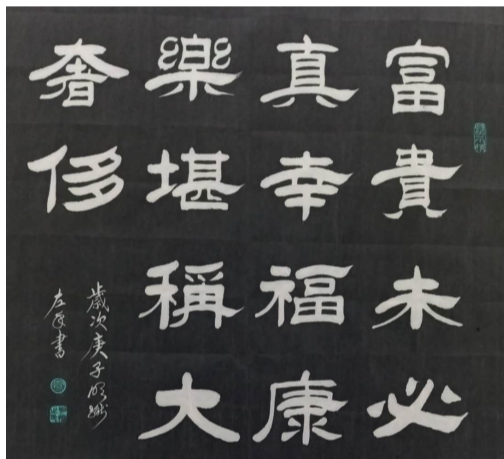 富貴未必
真幸福康
樂堪稱大
奢侈
歲次庚子
書